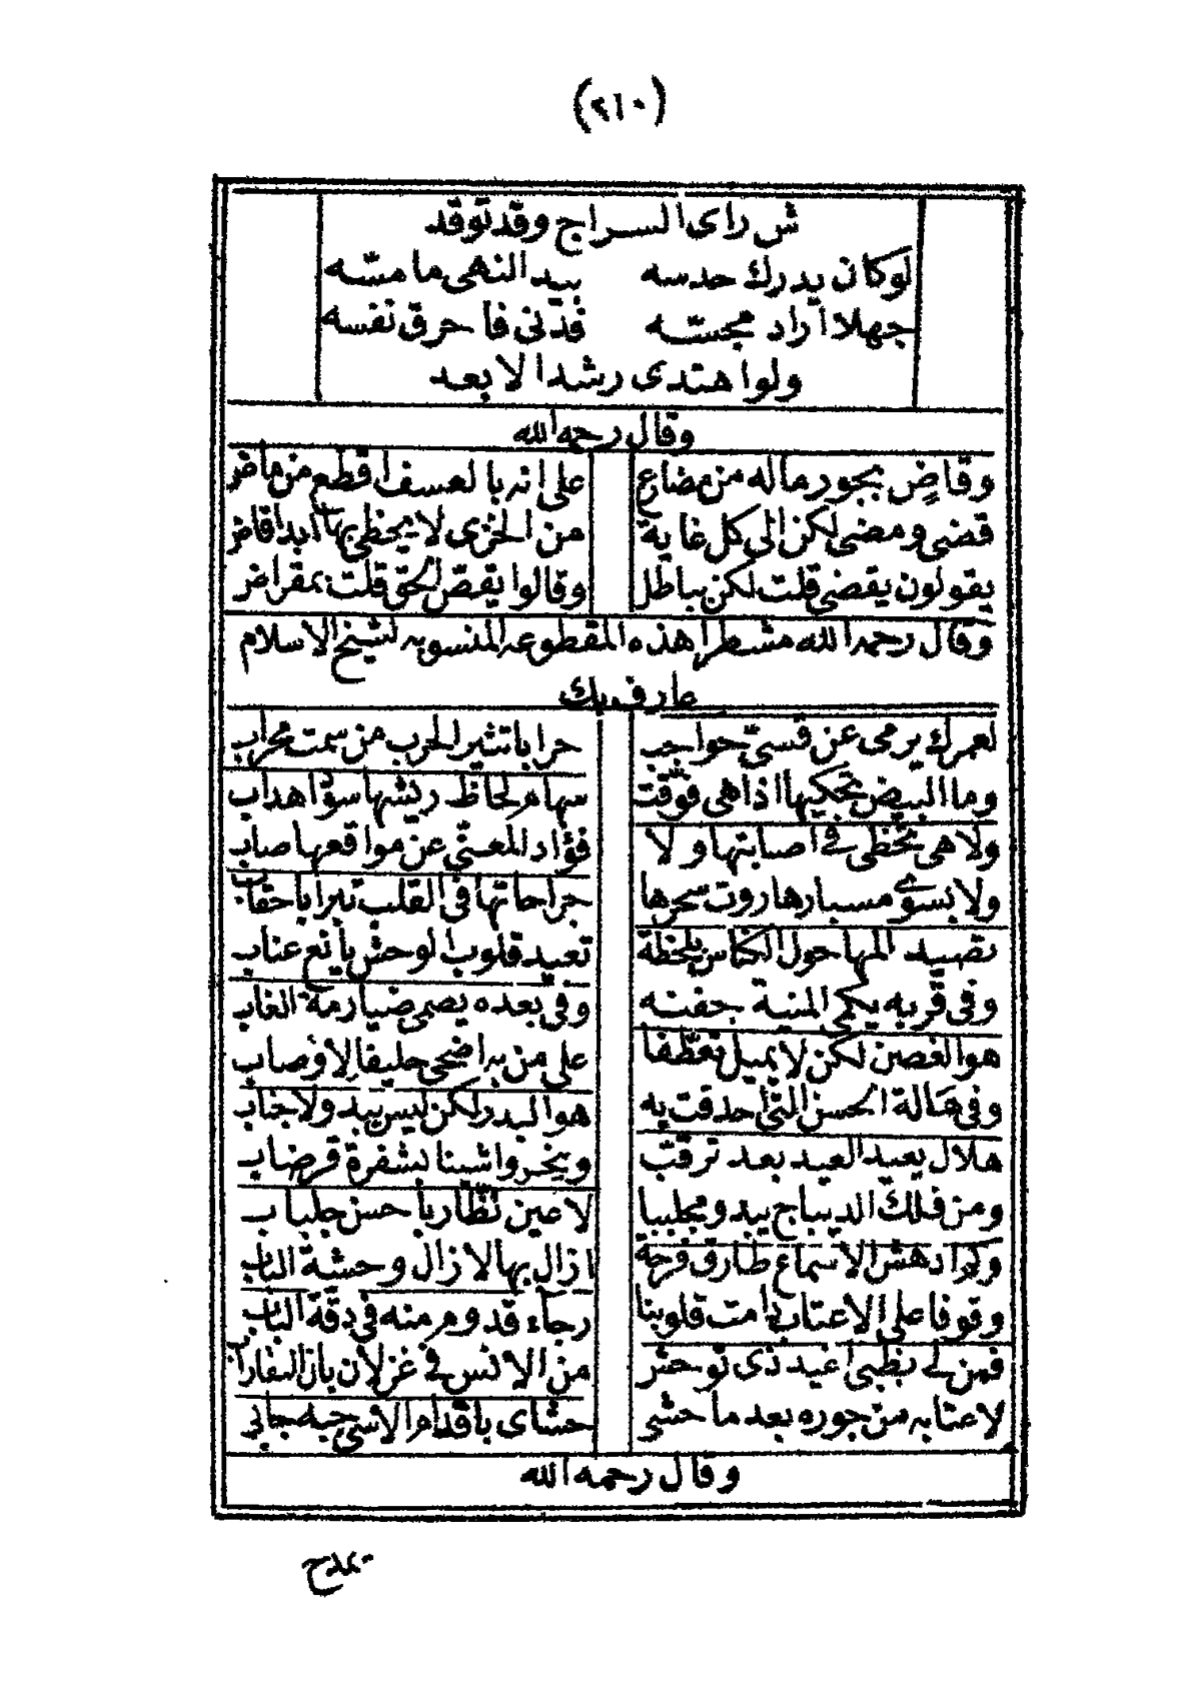 (٢١٠)
ش راى السراج وقد توقد
لوكان يدرك حدسه بيد النهى ما مسّه
جهلا أراد مجسّه فدنى فاحرق نفسه
ولو اهتدى رشد الابعد
وقال رحمه الله
وقاضٍ بجور ماله من مضارع على انه بالعسف اقطع من ماضر
قضى ومضى لكن الى كل غاية من الخزى لا يحظى بها ابدا قاض
يقولون يقضى قلت لكن بباطل وقالوا يقصّ الحق قلت بمقراض
وقال رحمه الله مشطرا هذه المقطوعه المنسوبه لشيخ الاسلام
عارف بك
لعمرك يرمى عن قسىّ حواجب حرابا تثير الحرب من سمت محراب
وما البيض تحكيها اذا هى فوّقت سهام لحاظ ريشها سود اهداب
ولا هى تخطى فى اصابتها ولا فؤاد المعنّى عن مواقعها صاب
ولا بسوى مسبار هاروت سحرها جراحاتها فى القلب تبرا باحقاب
تصيد المها حول الكناس بلحظة تعيد قلوب الوحش يانع عناب
وفى قربه يكمى المنية جفنه وفى بعده يصمى ضيارمة الغاب
هو الغصن لكن لا يميل تعطّفا على من به اضحى حليفا لاوصاب
وفى هالة الحسن التى احدقت به هو البدر لكن ليس يبدو لاجناب
هلال يعيد العيد بعد ترقّب وينحر واشينا بشفرة قرضاب
ومن فلك الديباج يبدو مجلببا لاعين نظّار باحسن جلباب
وكم ادهش الاسماع طارق فرحة ازال بها لازال وحشة الباب
وقوفا على الاعتاب دامت قلوبنا رجاء قدوم منه فى دقة الباب
فمن لى بظبى اغيد ذى توحش من الانس فى غزلان بان النقاراب
لاعتابه من جوره بعد ما حشى حشاى باقدام الاسى جيه جابى
وقال رحمه الله
يمدح